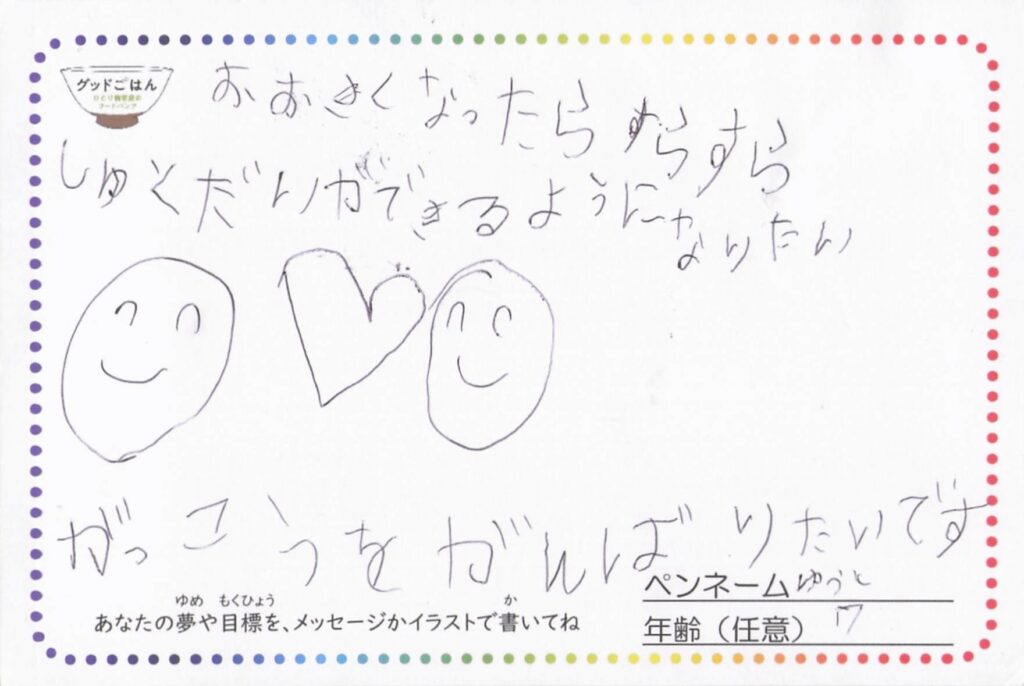 グッドごはん
ひとり親家庭の
フードバンク
おおきくなったらすらすら
しゅくだいができるように
なりたい
がっこうをがんばりたいです
ペンネームゆうと
ゆめ もくひょう か
あなたの夢や目標を、メッセージかイラストで書いてね
年齢（任意） 7